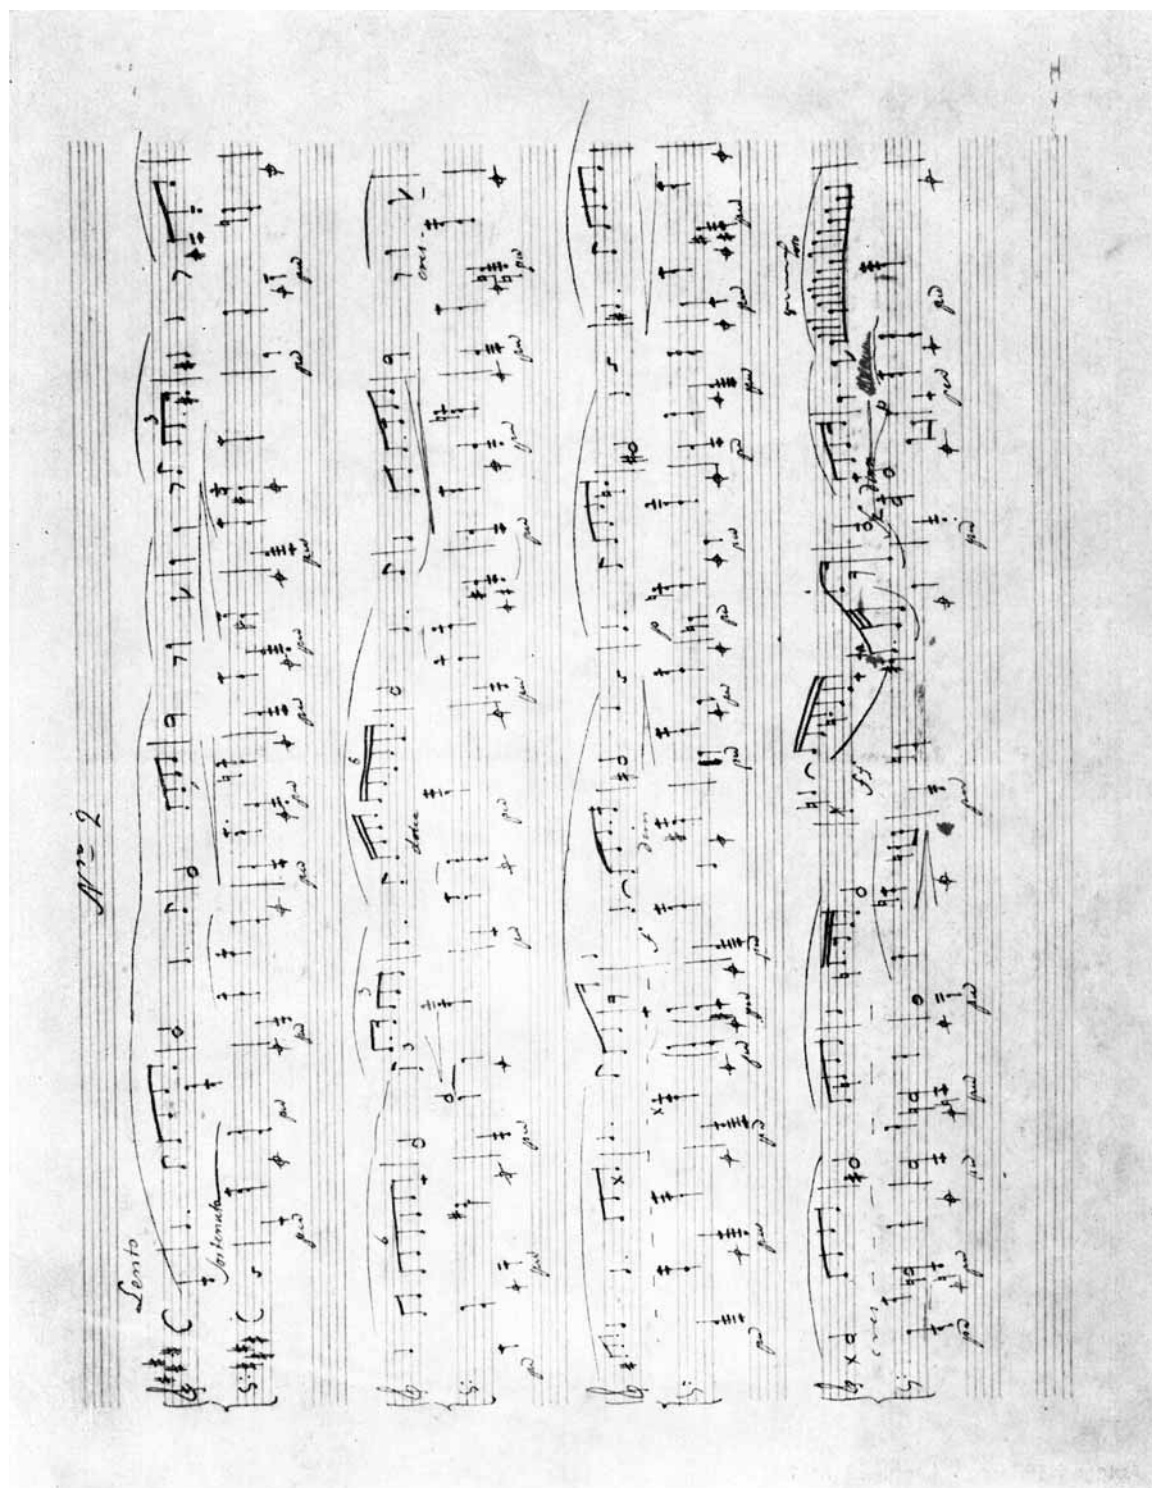 No 2
Lento
3
Sostenuto
ped ped ped ped ped ped ped ped ped ped
6 3 6
dolce cres -
ped ped ped ped ped ped ped ped ped ped
f dim p
ped ped ped ped ped ped ped ped ped ped ped ped ped ped
loco
cres ff dim p
ped ped ped ped ped ped ped ped ped